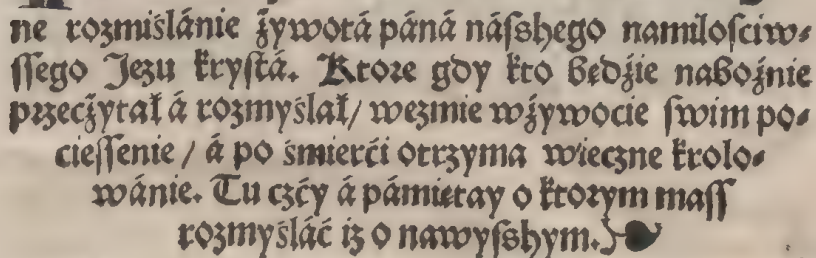 ne rozmiślánie żywotá páná náſsħego namiloſciw⸗
ſſego Jezu kryſtá. Ktore gdy kto będźie nabożnie
przecżytał á rozmyślał/ wezmie wżywocie ſwim po⸗
cieſſenie / á po śmierći otrzyma wieczne krolo⸗
wánie. Tu czći á pámiętay o ktorym maſſ
rozmyśláć iz o nawyſsħym.